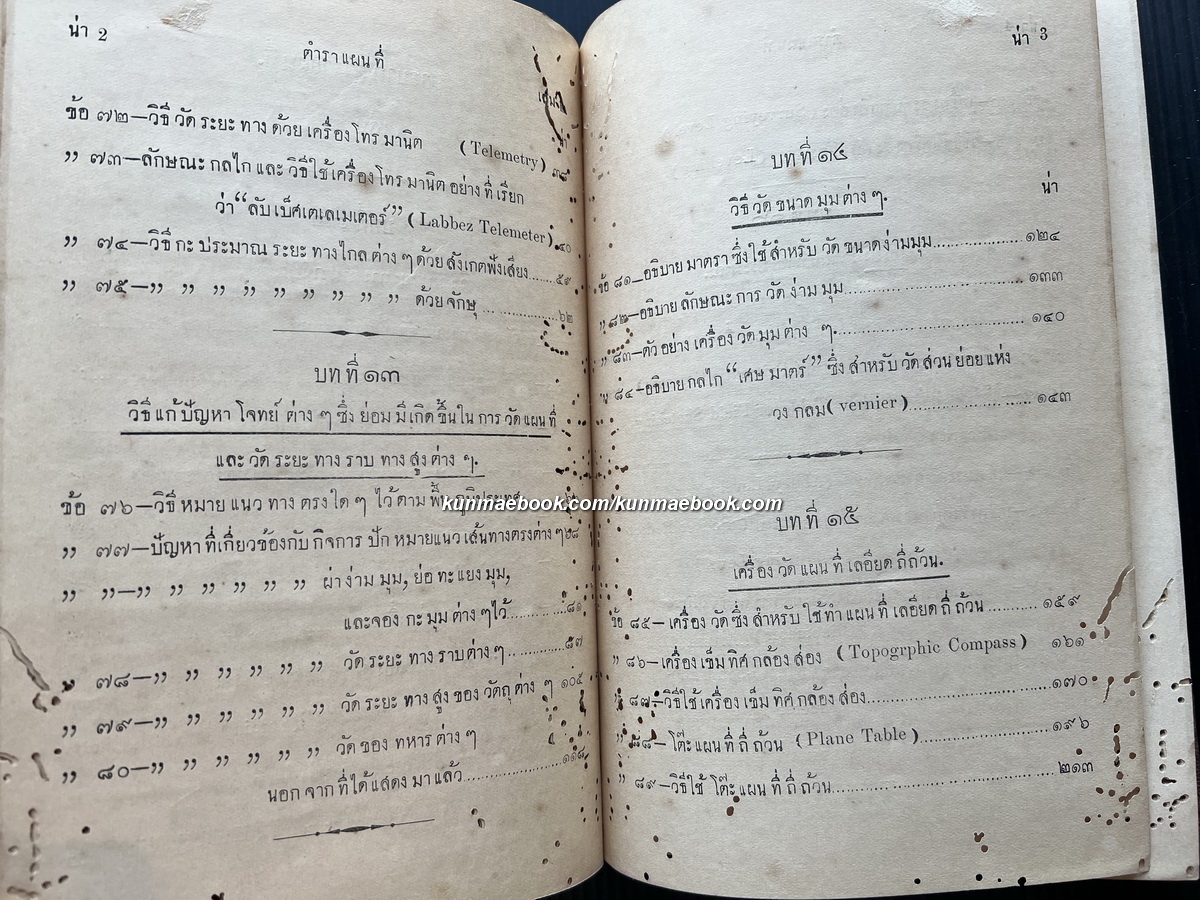 น่า 2
ตำราแผนที่
ข้อ ๗๒—วิธี วัด ระยะ ทาง ด้วย เครื่อง โทร มานิต (Telemetry)
” ๗๓—ลักษณะ กลไก และ วิธีใช้ เครื่อง โทร มานิต อย่าง ที่ เรียก
ว่า “ลับ เบ็ศเตเลเมเตอร์” (Labbez Telemeter) ๔๐
” ๗๔—วิธี กะ ประมาณ ระยะ ทางไกล ต่าง ๆ ด้วย สังเกตฟังเสียง......๕๙
” ๗๕—” ” ” ” ” ” ” ” ” ด้วย จักษุ ..................๖๒
บท ที่ ๑๓
วิธี แก้ ปัญหา โจทย์ ต่าง ๆ ซึ่ง ย่อม มี เกิด ขึ้น ใน การ วัด แผน ที่
และ วัด ระยะ ทาง ราบ ทาง สูง ต่าง ๆ.
ข้อ ๗๖—วิธี หมาย แนว ทาง ตรง ใด ๆ ไว้ ตาม พื้น ภูมิประเทศ
” ๗๗—ปัญหา ที่ เกี่ยวข้องกับ กิจการ ปัก หมายแนว เส้นทางตรงต่าง ๆ
” ”—” ” ” ” ” ” ผ่า ง่าม มุม, ย่อ ทะ แยง มุม,
และจอง กะ มุม ต่าง ๆ ไว้..........๘๑
” ๗๘—” ” ” ” ” ” วัด ระยะ ทาง ราบ ต่าง ๆ ..........๘๗
” ๗๙—” ” ” ” ” ” วัด ระยะ ทาง สูง ของ วัตถุ ต่าง ๆ ๑๐๕
” ๘๐—” ” ” ” ” ” วัด ของ ทหาร ต่าง ๆ
นอก จาก ที่ ได้ แสดง มา แล้ว..................๑๑๘
น่า 3
บท ที่ ๑๔
วิธี วัด ขนาด มุม ต่าง ๆ.
น่า
ข้อ ๘๑—อธิบาย มาตรา ซึ่ง ใช้ สำหรับ วัด ขนาด ง่าม มุม................๑๒๔
” ๘๒—อธิบาย ลักษณะ การ วัด ง่าม มุม..............................๑๓๓
” ๘๓—ตัว อย่าง เครื่อง วัด มุม ต่าง ๆ..............................๑๔๐
” ๘๔—อธิบาย กลไก “เศษ มาตร์” ซึ่ง สำหรับ วัด ส่วน ย่อย แห่ง
วง กลม (vernier)........................๑๔๓
บท ที่ ๑๕
เครื่อง วัด แผน ที่ เลอียด ถี่ถ้วน.
ข้อ ๘๕—เครื่อง วัด ซึ่ง สำหรับ ใช้ ทำ แผน ที่ เลอียด ถี่ ถ้วน..........๑๕๙
” ๘๖—เครื่อง เข็ม ทิศ กล้อง ส่อง (Topogrphic Compass) ๑๖๑
” ๘๗—วิธีใช้ เครื่อง เข็ม ทิศ กล้อง ส่อง..............................๑๗๐
” ๘๘—โต๊ะ แผน ที่ ถี่ ถ้วน (Plane Table)........................๑๙๖
” ๘๙—วิธีใช้ โต๊ะ แผน ที่ ถี่ ถ้วน..............................๒๑๓
kunmaebook.com/kunmaebook.com